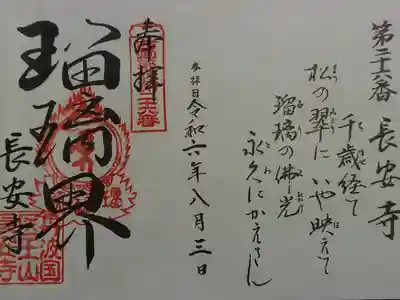 第二十六番 長安寺
千歳経て
松の翠に いや映えて
瑠璃の佛光
永久にかえさん
参拝日 令和六年八月三日
奉拝
瑠璃界
長安寺